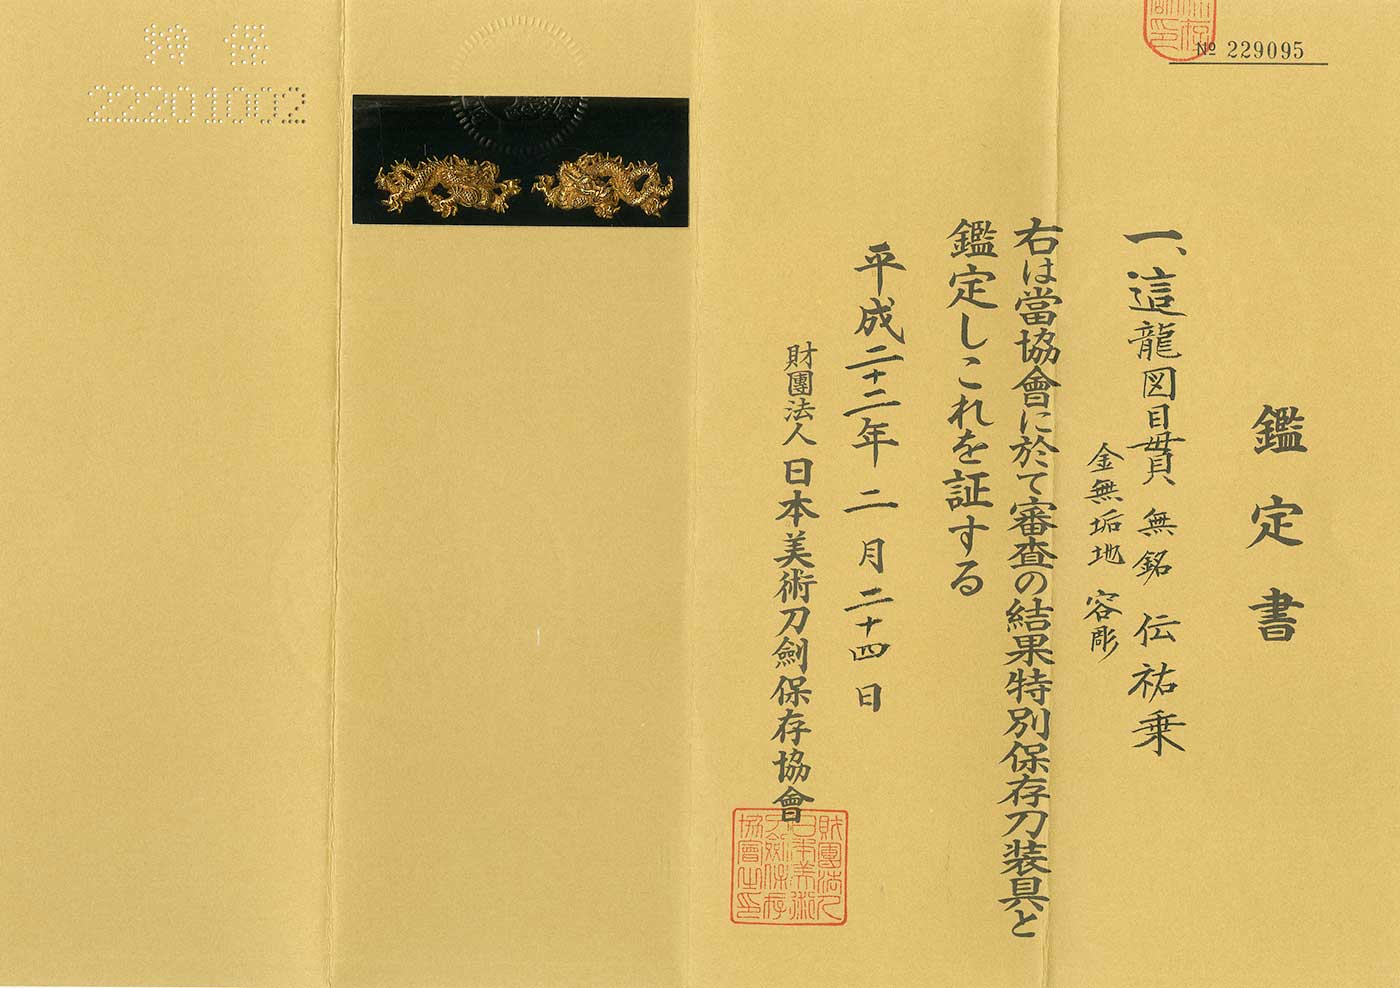 鑑定書
一、這龍図目貫 無銘 伝祐乗
金無垢地 容彫
右は當協會に於て審査の結果特別保存刀装具と
鑑定しこれを証する
平成二十二年 二月 二十四日
財團法人 日本美術刀劍保存協會
財團法人
日本美術
刀劍保存
協會之印
№ 229095
特 保
22201002